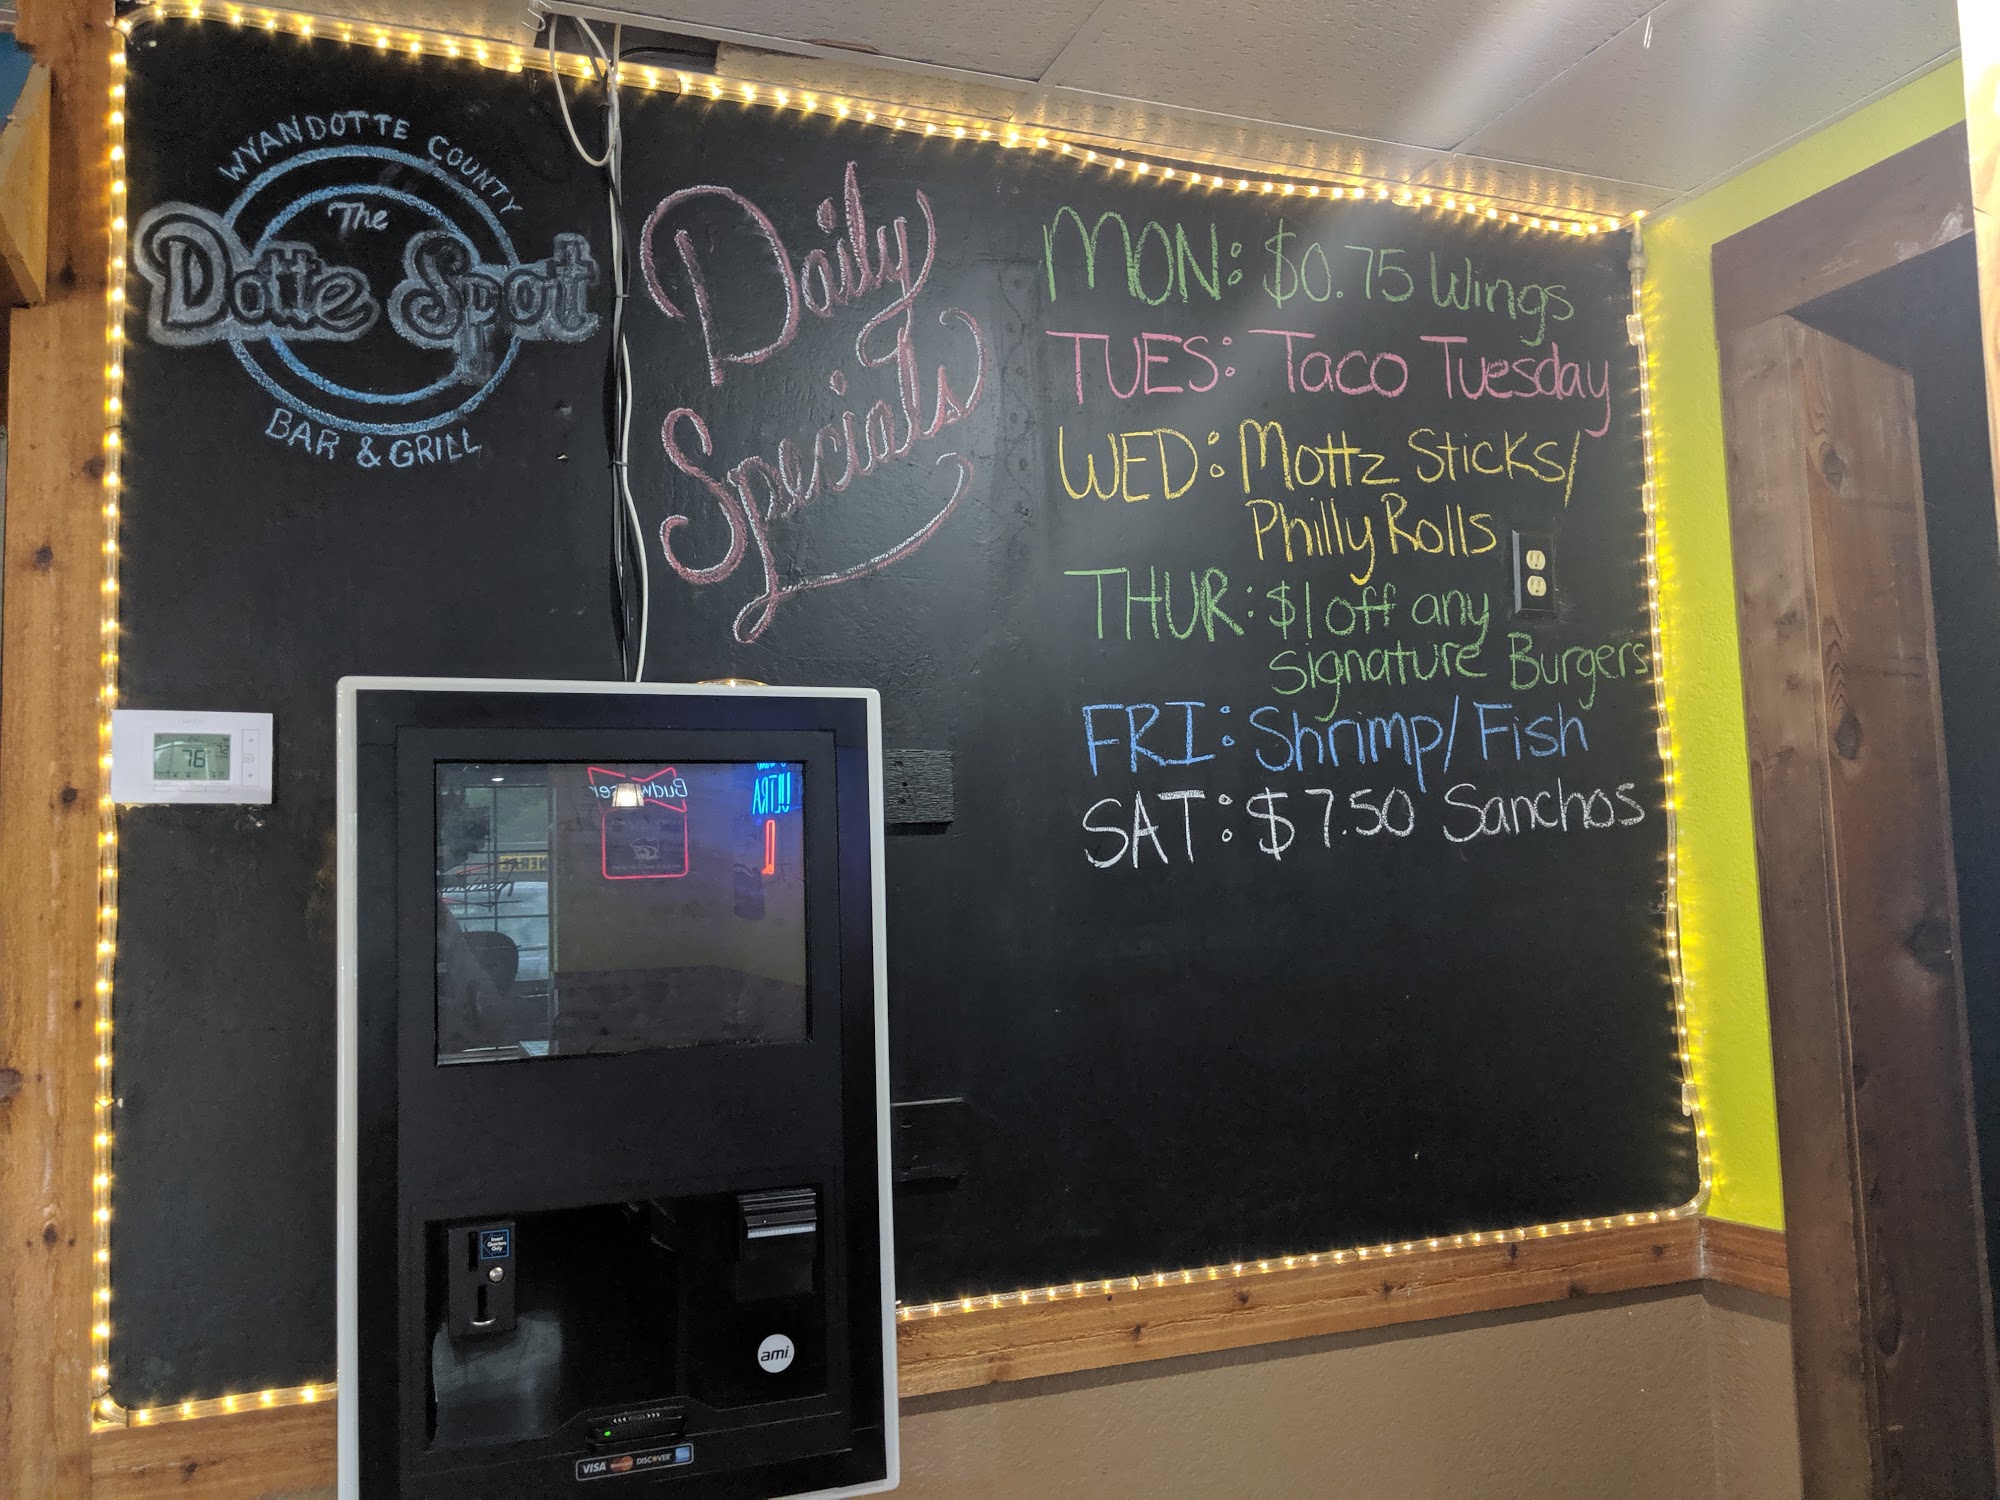 WYANDOTTE COUNTY
The
Dotte Spot
BAR & GRILL
Daily
Specials
MON: $0.75 Wings
TUES: Taco Tuesday
WED: Mottz Sticks/
Philly Rolls
THUR: $1 off any
Signature Burgers
FRI: Shrimp/Fish
SAT: $7.50 Sanchos
76
72
Budweiser
ULTRA
Insert
Quarters
Only
ami
VISA MasterCard DISCOVER